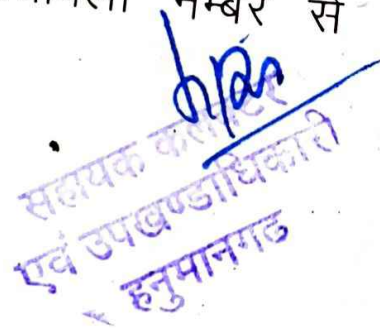 नम्बर से
सहायक कलेक्टर
एवं उपखण्डाधिकारी
हनुमानगढ